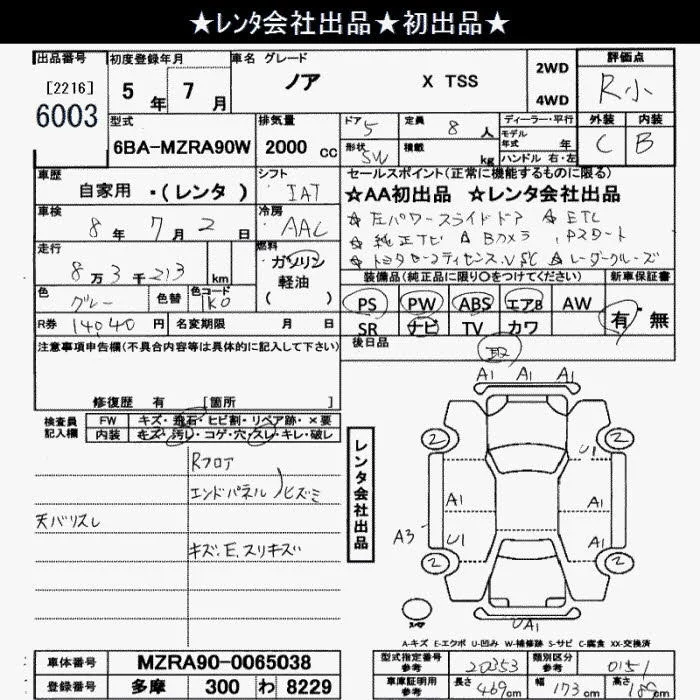 ★レンタ会社出品★初出品★
出品番号 初度登録年月 車名 グレード 評価点
[2216] 6003 5年 7月 ノア X TSS 2WD 4WD R小
型式 排気量 ドア 5 定員 8人 ディーラー・平行 外装 内装
6BA-MZRA90W 2000cc 形状 SW 積載 kg モデル年式 年 ハンドル 右・左 C B
車歴 シフト セールスポイント(正常に機能するものに限る)
自家用 ・(レンタ) IAT ★AA初出品 ☆レンタ会社出品
車検 冷房 ☆左パワースライドドア ☆ETC
8年 7月 2日 AAC ☆純正ナビ ☆Bカメラ Pスタート
走行 燃料 ☆トヨタセーフティセンス、VSC ☆レーダークルーズ
8万3千213km ガソリン 軽油 ( ) 装備品(純正品に限り○をつけてください) 新車保証書
色 グレー 色替 色コード K0 PS PW ABS エアB AW 有・無
R券 14040円 名変期限 月 日 SR ナビ TV カワ
注意事項申告欄(不具合内容等は具体的に記入して下さい) 後日品 取
修復歴 有 [箇所 ]
検査員記入欄 FW キズ・飛石・ヒビ割・リペア跡・×要
内装 キズ・汚レ・コゲ・穴・スレ・キレ・破レ
Rフロア
エンドパネル ヒズミ
天バリスレ
キズ.E.スリキズ
レンタ会社出品
A1 A1 A1
2 2
U1
A1 A1
A3 U1 A1
2 2
UA1
A-キズ E-エクボ U-凹み W-補修跡 S-サビ C-腐食 XX-交換済
車体番号 MZRA90-0065038 型式指定番号 参考 20353 類別区分 参考 0151
登録番号 多摩 300 わ 8229 車庫証明用 参考 長さ 469cm 幅 173cm 高さ cm